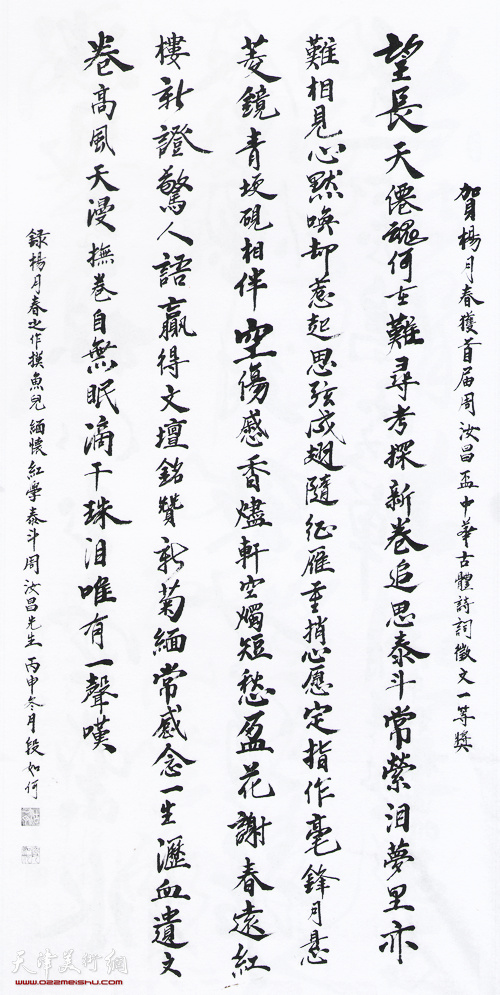 賀楊月春獲首届周汝昌盃中華古體詩詞徵文一等奬
望長天僊魂何去難尋考探新卷追思泰斗常縈泪夢里亦
難相見心默唤却惹起思弦成翅隨征雁重捎心愿定指作毫鋒月悬
菱鏡青埂硯相伴空傷感香燼軒空燭短愁盈花謝春遠紅
樓新證驚人語贏得文壇銘贊新菊緬常感念一生瀝血遺文
卷高風天漫撫卷自無眠滴千珠泪唯有一聲嘆
録楊月春之作摸魚兒緬懷紅學泰斗周汝昌先生丙申冬月段如何
天津美術網
www.022meishu.com